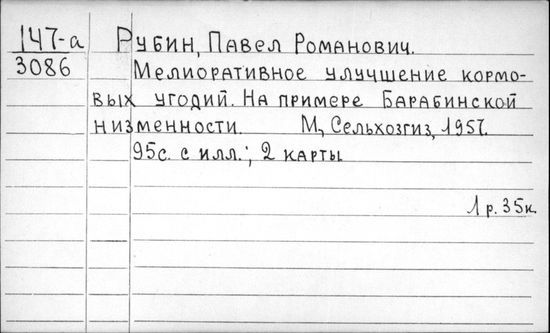 147-а Рубин, Павел Романович.
3086 Мелиоративное улучшение кормо-
вых угодий. На примере Барабинской
низменности. М., Сельхозгиз, 1957.
95с. с илл.; 2 карты
1 р. 35к.